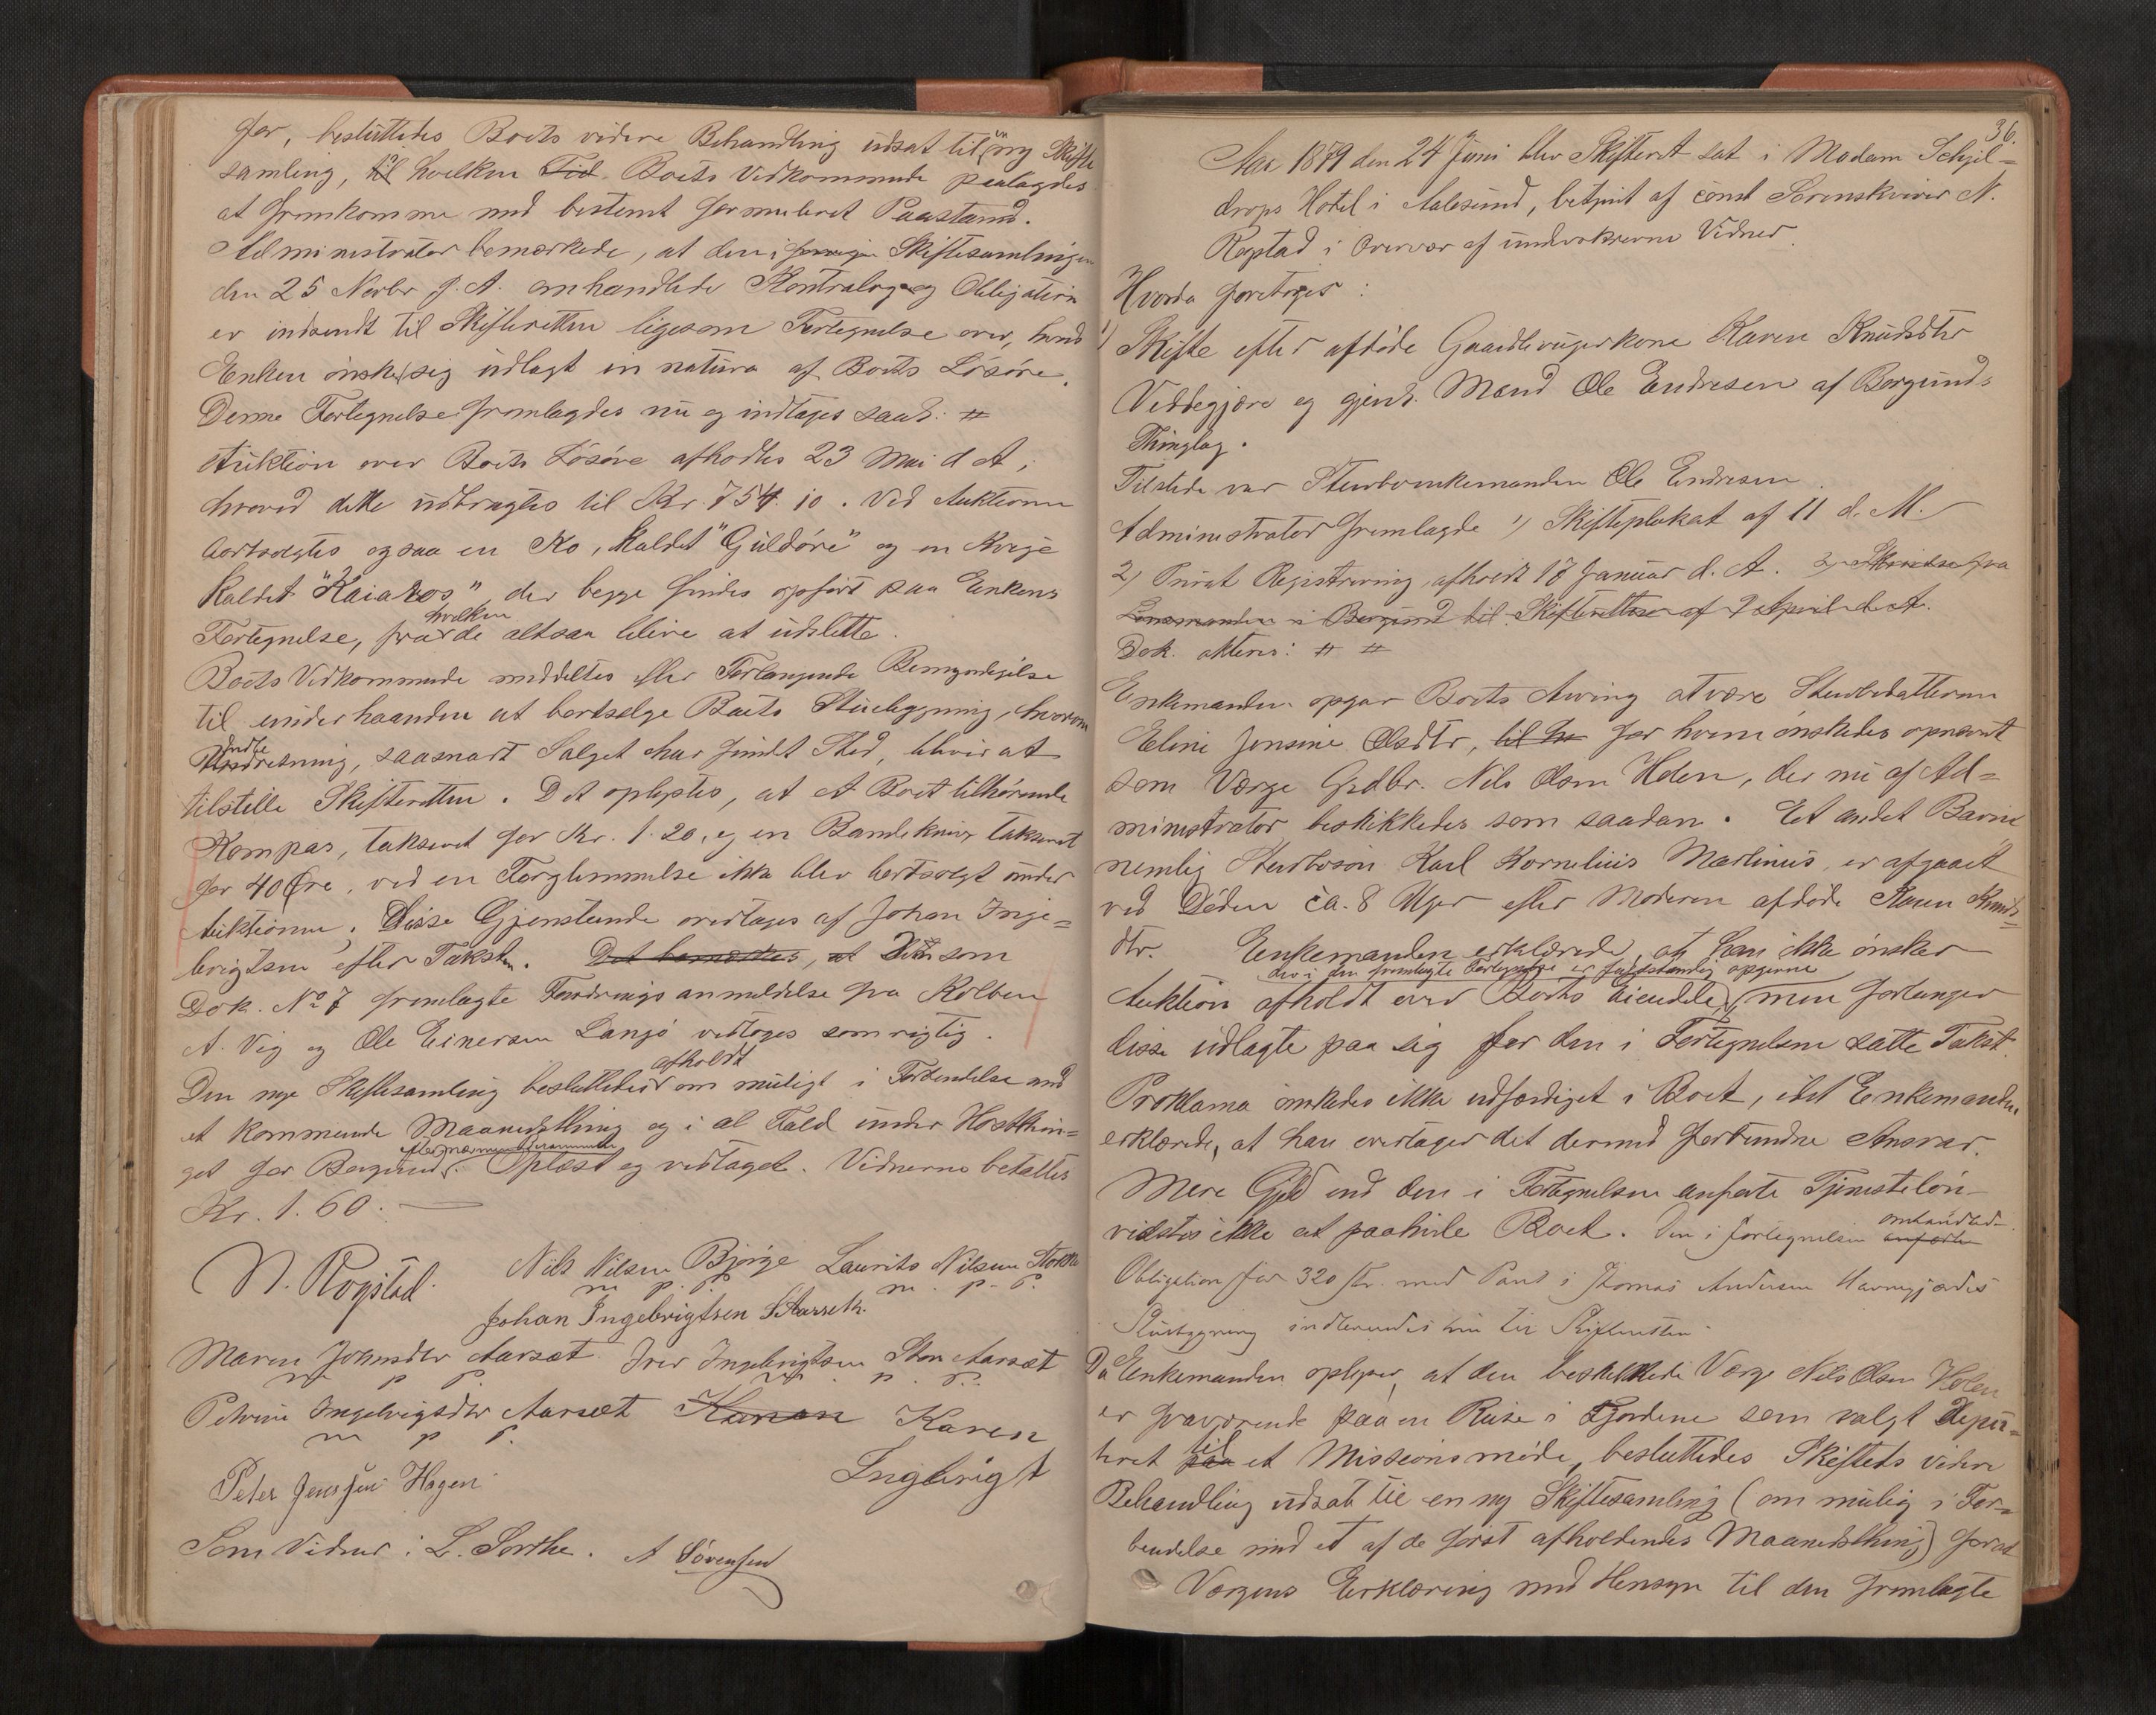 for, besluttedes Boets videre Behandling udsat til en ny Skifte
samling, til hvilken Tid Boets Vedkommende paalagdes
at fremkomme med bestemt formuleret Paastand.
Administrator bemærkede, at den i forrige Skiftesamlingen
den 25 Novbr f. A. omhandlede Kontralog og Obligation
er indsendt til Skifteretten ligesom Fortegnelse over, hvad
Enken ønsker sig udlagt in natura af Boets Løsøre.
Denne Fortegnelse fremlagdes nu og indtages saal: #
Auktion over Boets Løsøre afholdtes 23 Mai d A,
hvorved dette udbragtes til Kr. 754. 10. Ved Auktionen
bortsolgtes ogsaa en Ko, kaldet "Guldøre" og en Kvige
kaldet "Kaiaros", der begge findes opført paa Enkens
Fortegnelse, fra hvilken de altsaa blive at udslette.
Boets Vedkommende meddeltes efter Forlangende Bemyndigelse
til underhaanden at bortsælge Boets Stuebygning, hvorom
Indberetning, saasnart Salget har fundet Sted, bliver at
tilstille Skifteretten. Det oplystes, at et Boet tilhørende
Kompas, takseret for Kr. 1.20, og en Bandekniv takseret
for 40 Øre, ved en Forglemmelse ikke blev bortsolgt under
Auktionen. Disse Gjenstande overtages af Johan Inge=
brigtsen efter Taksten. Det bemærkes, at Den som
Dok. No 7 fremlagte Fordringsanmeldelse fra Kolben
A. Vig og Ole Einersen Langø vedtoges som rigtig.
Den nye Skiftesamling besluttedes afholdt om muligt i Forbindelse med
et kommende Maanedsthing og i al Fald under Høstthin=
get for Borgund efter nærmere Berammelse. Oplæst og vedtaget. Vidnerne betaltes
Kr. 1. 60.
N. Rogstad. Nils Nilsen Bjørge Laurits Nilsen Stokke
m. p. P. m. p. P.
Johan Ingebrigtsen Aarseth.
Maren Johnsdtr Aarsæt. Iver Ingebrigtsen Aarsæt
m p P. m. p. P.
Petrine Ingebrigtsdtr Aarsæt Kanan Karen
m p P.
Ingebrigt
Peter Hagen
Som Vidner: L. Sorthe. A Sørensen
36.
Aar 1879 den 24 Juni blev Skifteret sat i Madam Schjel=
drops Hotel i Aalesund, betjent af const Sorenskriver N.
Rogstad i Overvær af underskrevne Vidner.
Hvorda foretoges:
1) Skifte efter afdøde Gaardbrugerkone Karen Knudsdtr
Veddegjære og gjenl. Mand Ole Endresen af Borgunds
Thinglag.
Tilstede var Stervboenkemanden Ole Endresen.
Administrator fremlagde 1) Skifteplakat af 11 d. M.
2) Privat Registrering, afholdt 18 Januar d. A. 3) Skrivelse fra
Lensmanden i Borgund til Skifteretten af 9 April d. A.
Dok. akteres: # #
Enkemanden opgav Boets Arving at være Stervbodatteren
Eline Jensine Olsdtr, til he for hvem ønskedes opnævnt
som Værge Grdbr. Nils Olsen Holen, der nu af Ad=
ministrator beskikkedes som saadan. Et andet Barn
nemlig Stervbosøn Karl Kornelius Martinus, er afgaaet
ved Døden ca. 8 Uger efter Moderen afdøde Karen Knuds=
dtr. Enkemanden erklærede, at han ikke ønsker
der i den fremlagte Fortegnelse er fuldstændig opgivne
Auktion afholdt over Boets Eiendele, men forlanger
disse udlagte paa sig for den i Fortegnelsen satte Takst.
Proklama ønskedes ikke udfærdiget i Boet, idet Enkemanden
erklærede, at han overtager det dermed forbundne Ansvar.
Mere Gjæld end den i Fortegnelsen anførte Tjenesteløn
vidstes ikke at paahvile Boet. Den i Fortegnelsen anførte omhandlede
Obligation for 320 Kr. med Pant i Thomas Andersen Havnegjærdes
Stuebygning indleveredes nu til Skifteretten.
Da Enkemanden oplyser, at den beskikkede Værge Nils Olsen Holen
er fraværende paa en Reise i Fjordene som valgt Depu=
teret paa til et Missionsmøde, besluttedes Skiftets videre
Behandling udsat til en ny Skiftesamling (om mulig i For=
bindelse med et af de først afholdendes Maanedsthing) forat
Værgens Erklæring med Hensyn til den fremlagte